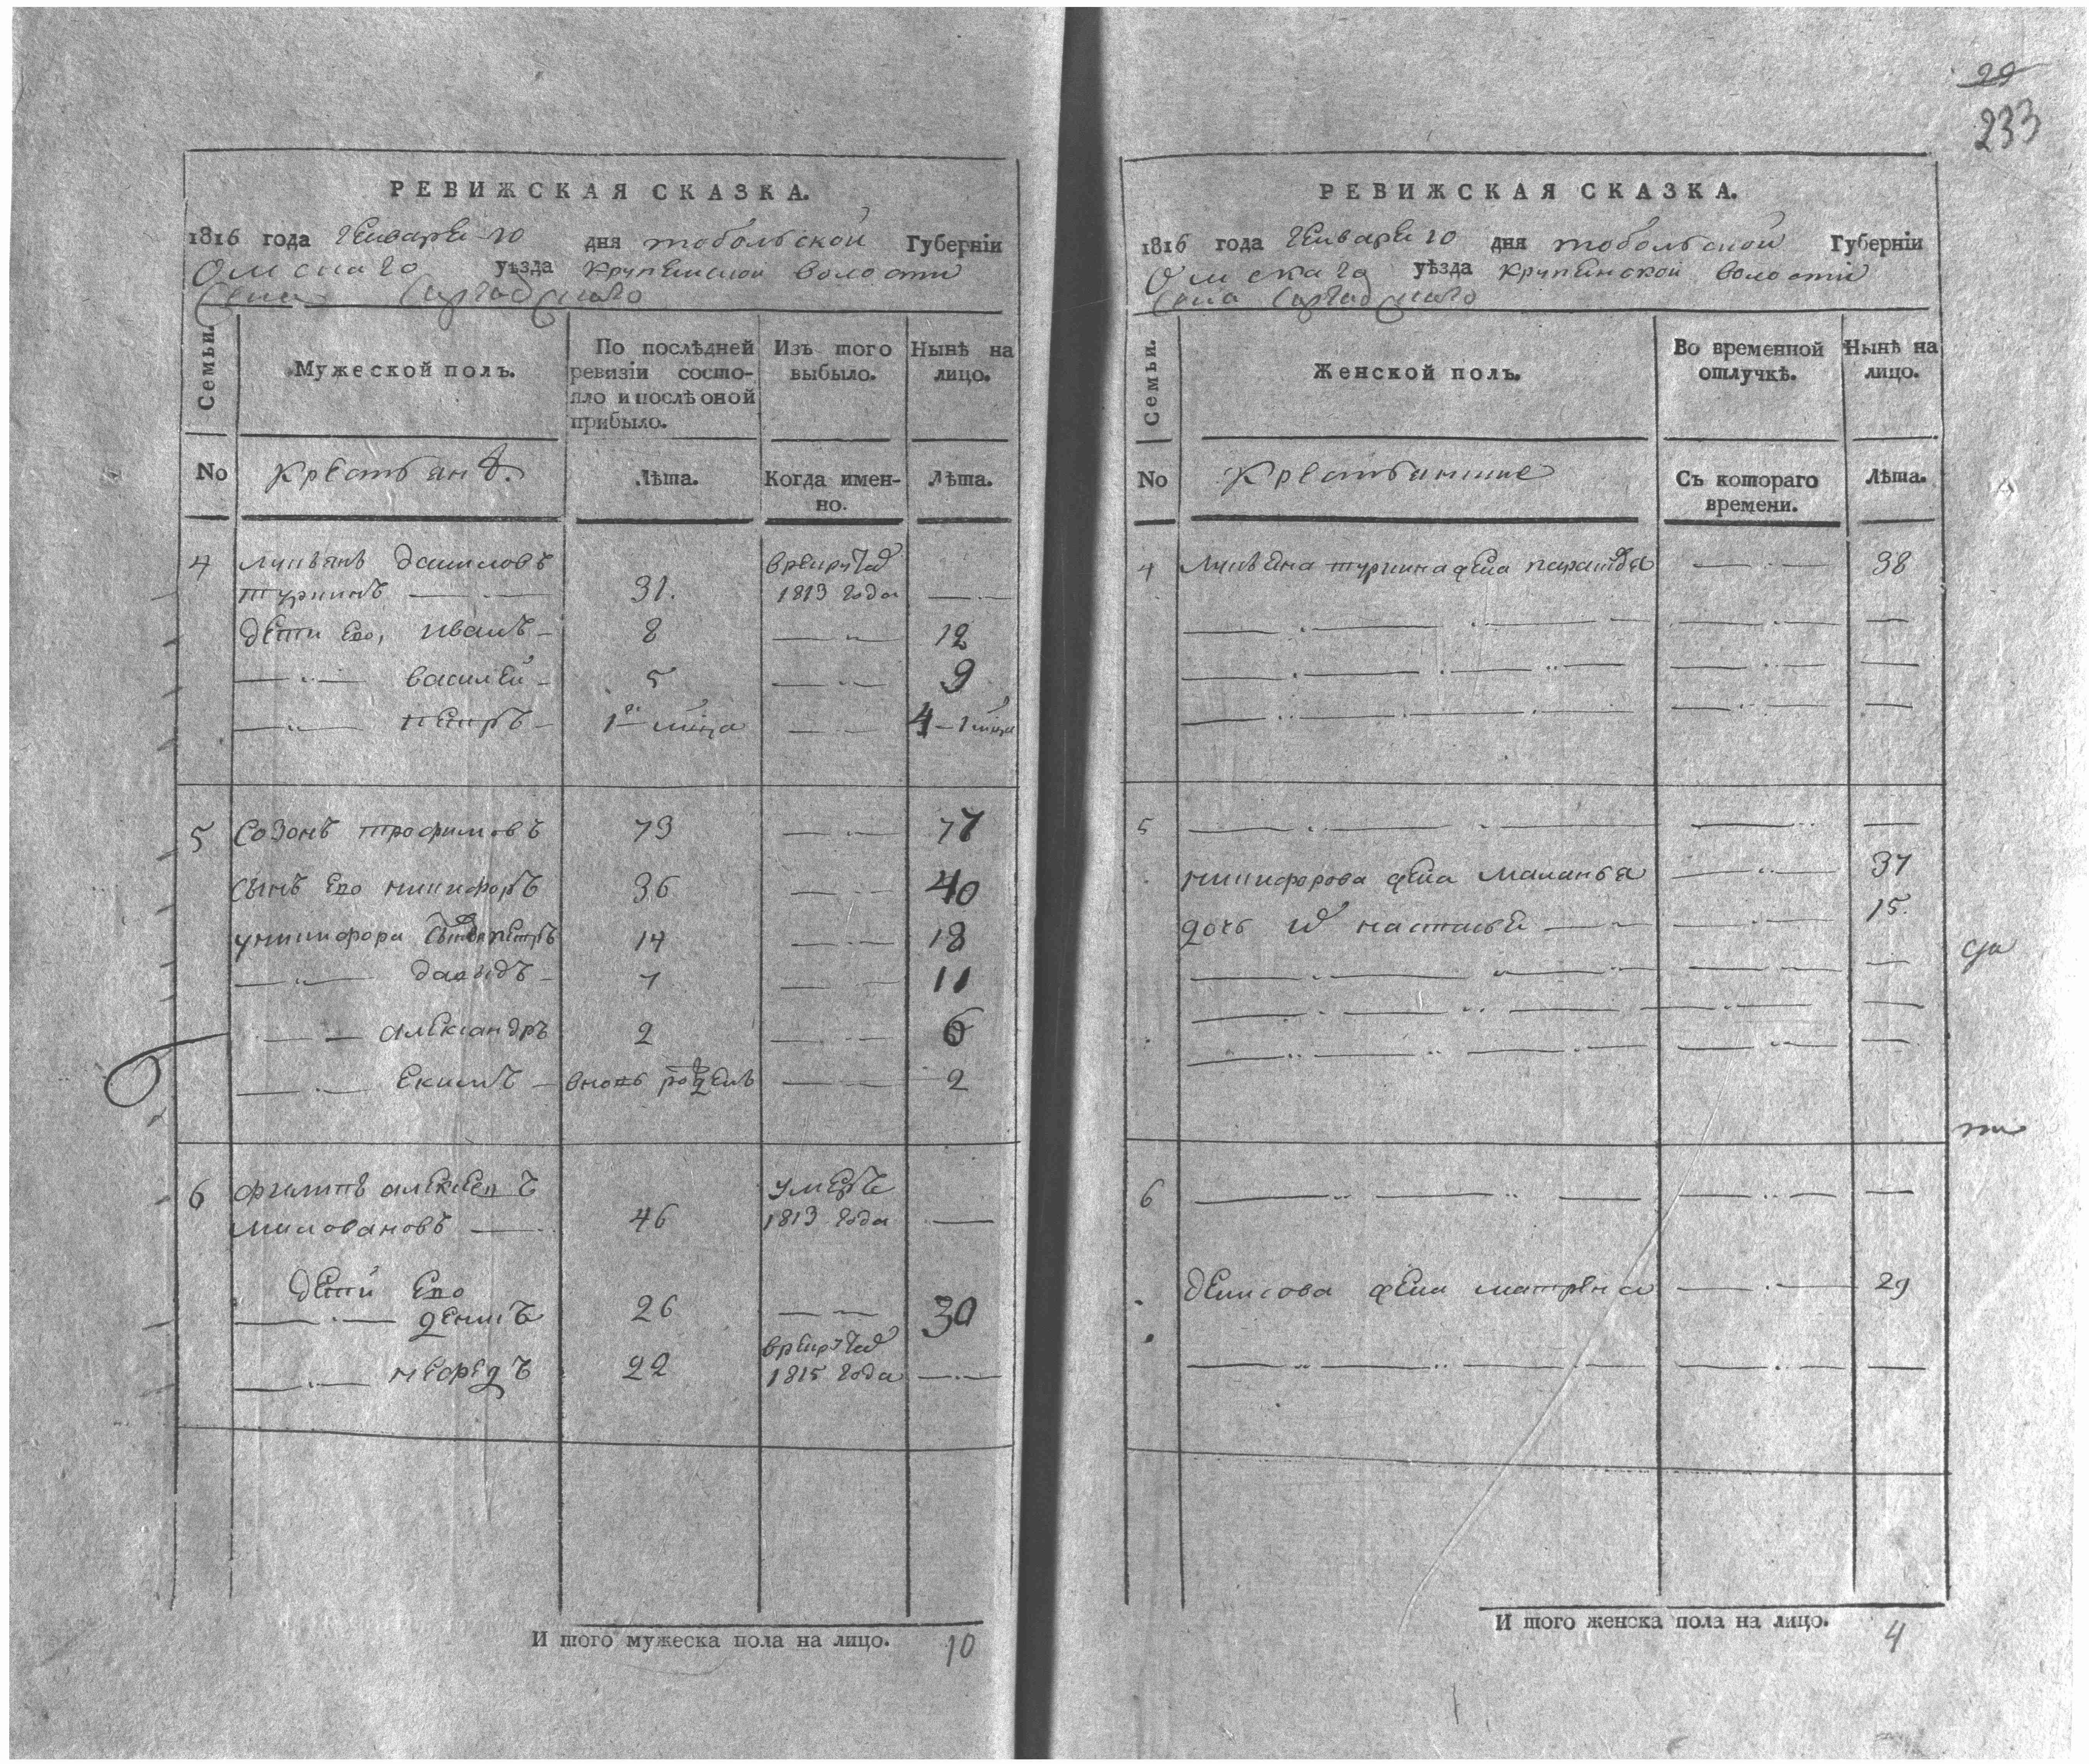 29
233
РЕВИЖСКАЯ СКАЗКА.
1816 года Генваря 10 дня тобольской Губерніи
Омскаго уѣзда крупенской волости
Села
Семьи. Мужеской полъ. По послѣдней ревизіи состояло и послѣ оной прибыло. Изъ того выбыло. Нынѣ на лицо.
No Крестьянъ. Лѣта. Когда именно. Лѣта.
4 лукьянъ даниловъ врекруты
туркинъ 31. 1813 года
дети ево, иванъ 8 12
василей 5 9
петръ 1 мѣца 4 - 1 мѣца
5 созонъ трофимовъ 73 77
сынъ ево никифоръ 36 40
уникифора петръ 14 18
давыдъ 7 11
александръ 2 6
екимъ вновь рожденъ 2
6 филипъ алексеевъ умеръ
миловановъ 46 1813 года
дети ево
денисъ 26 30
врекруты
нефредъ 22 1815 года
И того мужеска пола на лицо. 10
РЕВИЖСКАЯ СКАЗКА.
1816 года Генваря 10 дня тобольской Губерніи
Омскаго уѣзда крупенской волости
Села
Семьи. Женской полъ. Во временной отлучкѣ. Нынѣ на лицо.
No Крестьянские Съ котораго времени. Лѣта.
4 лукьяна туркина жена 38
5
никифорова жена маланья 37
дочь настасья 15.
6
денисова жена матрена 29
И того женска пола на лицо. 4